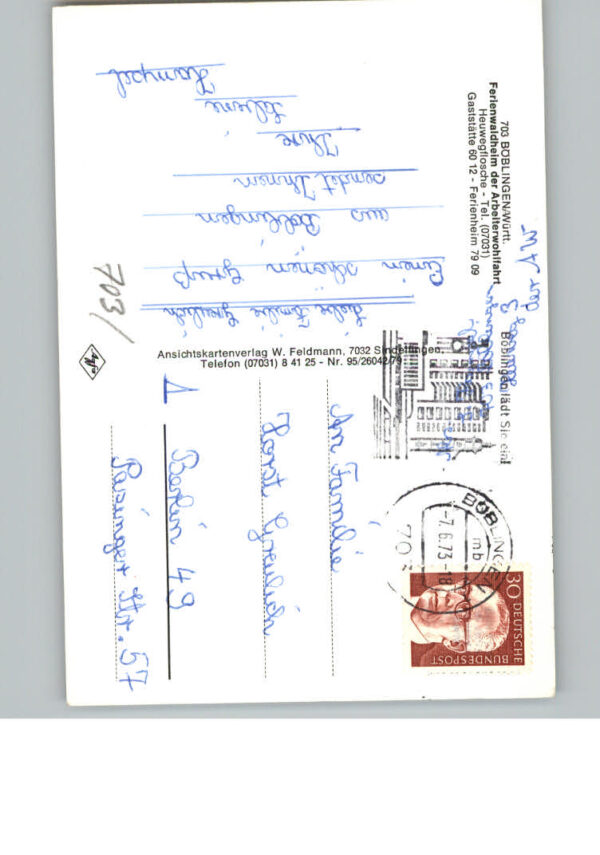 703 BÖBLINGEN/Württ.
Ferienwaldheim der Arbeiterwohlfahrt
Heuwegflosche - Tel. (07031)
Gaststätte 60 12 - Ferienheim 79 09
Liebe Familie Greulich
Einen schönen Gruß
aus Böblingen
sendet Ihnen
Ihre
Hampel
703/
Agfa
Ansichtskartenverlag W. Feldmann, 7032 Sindelfingen,
Telefon (07031) 8 41 25 - Nr. 95/26042/79
Böblingen lädt Sie ein!
BÖBLINGEN
mb
-7.6.73-18
703
30 DEUTSCHE
BUNDESPOST
An Familie
Horst Greulich
1 Berlin 49
Paisinger Str. 57